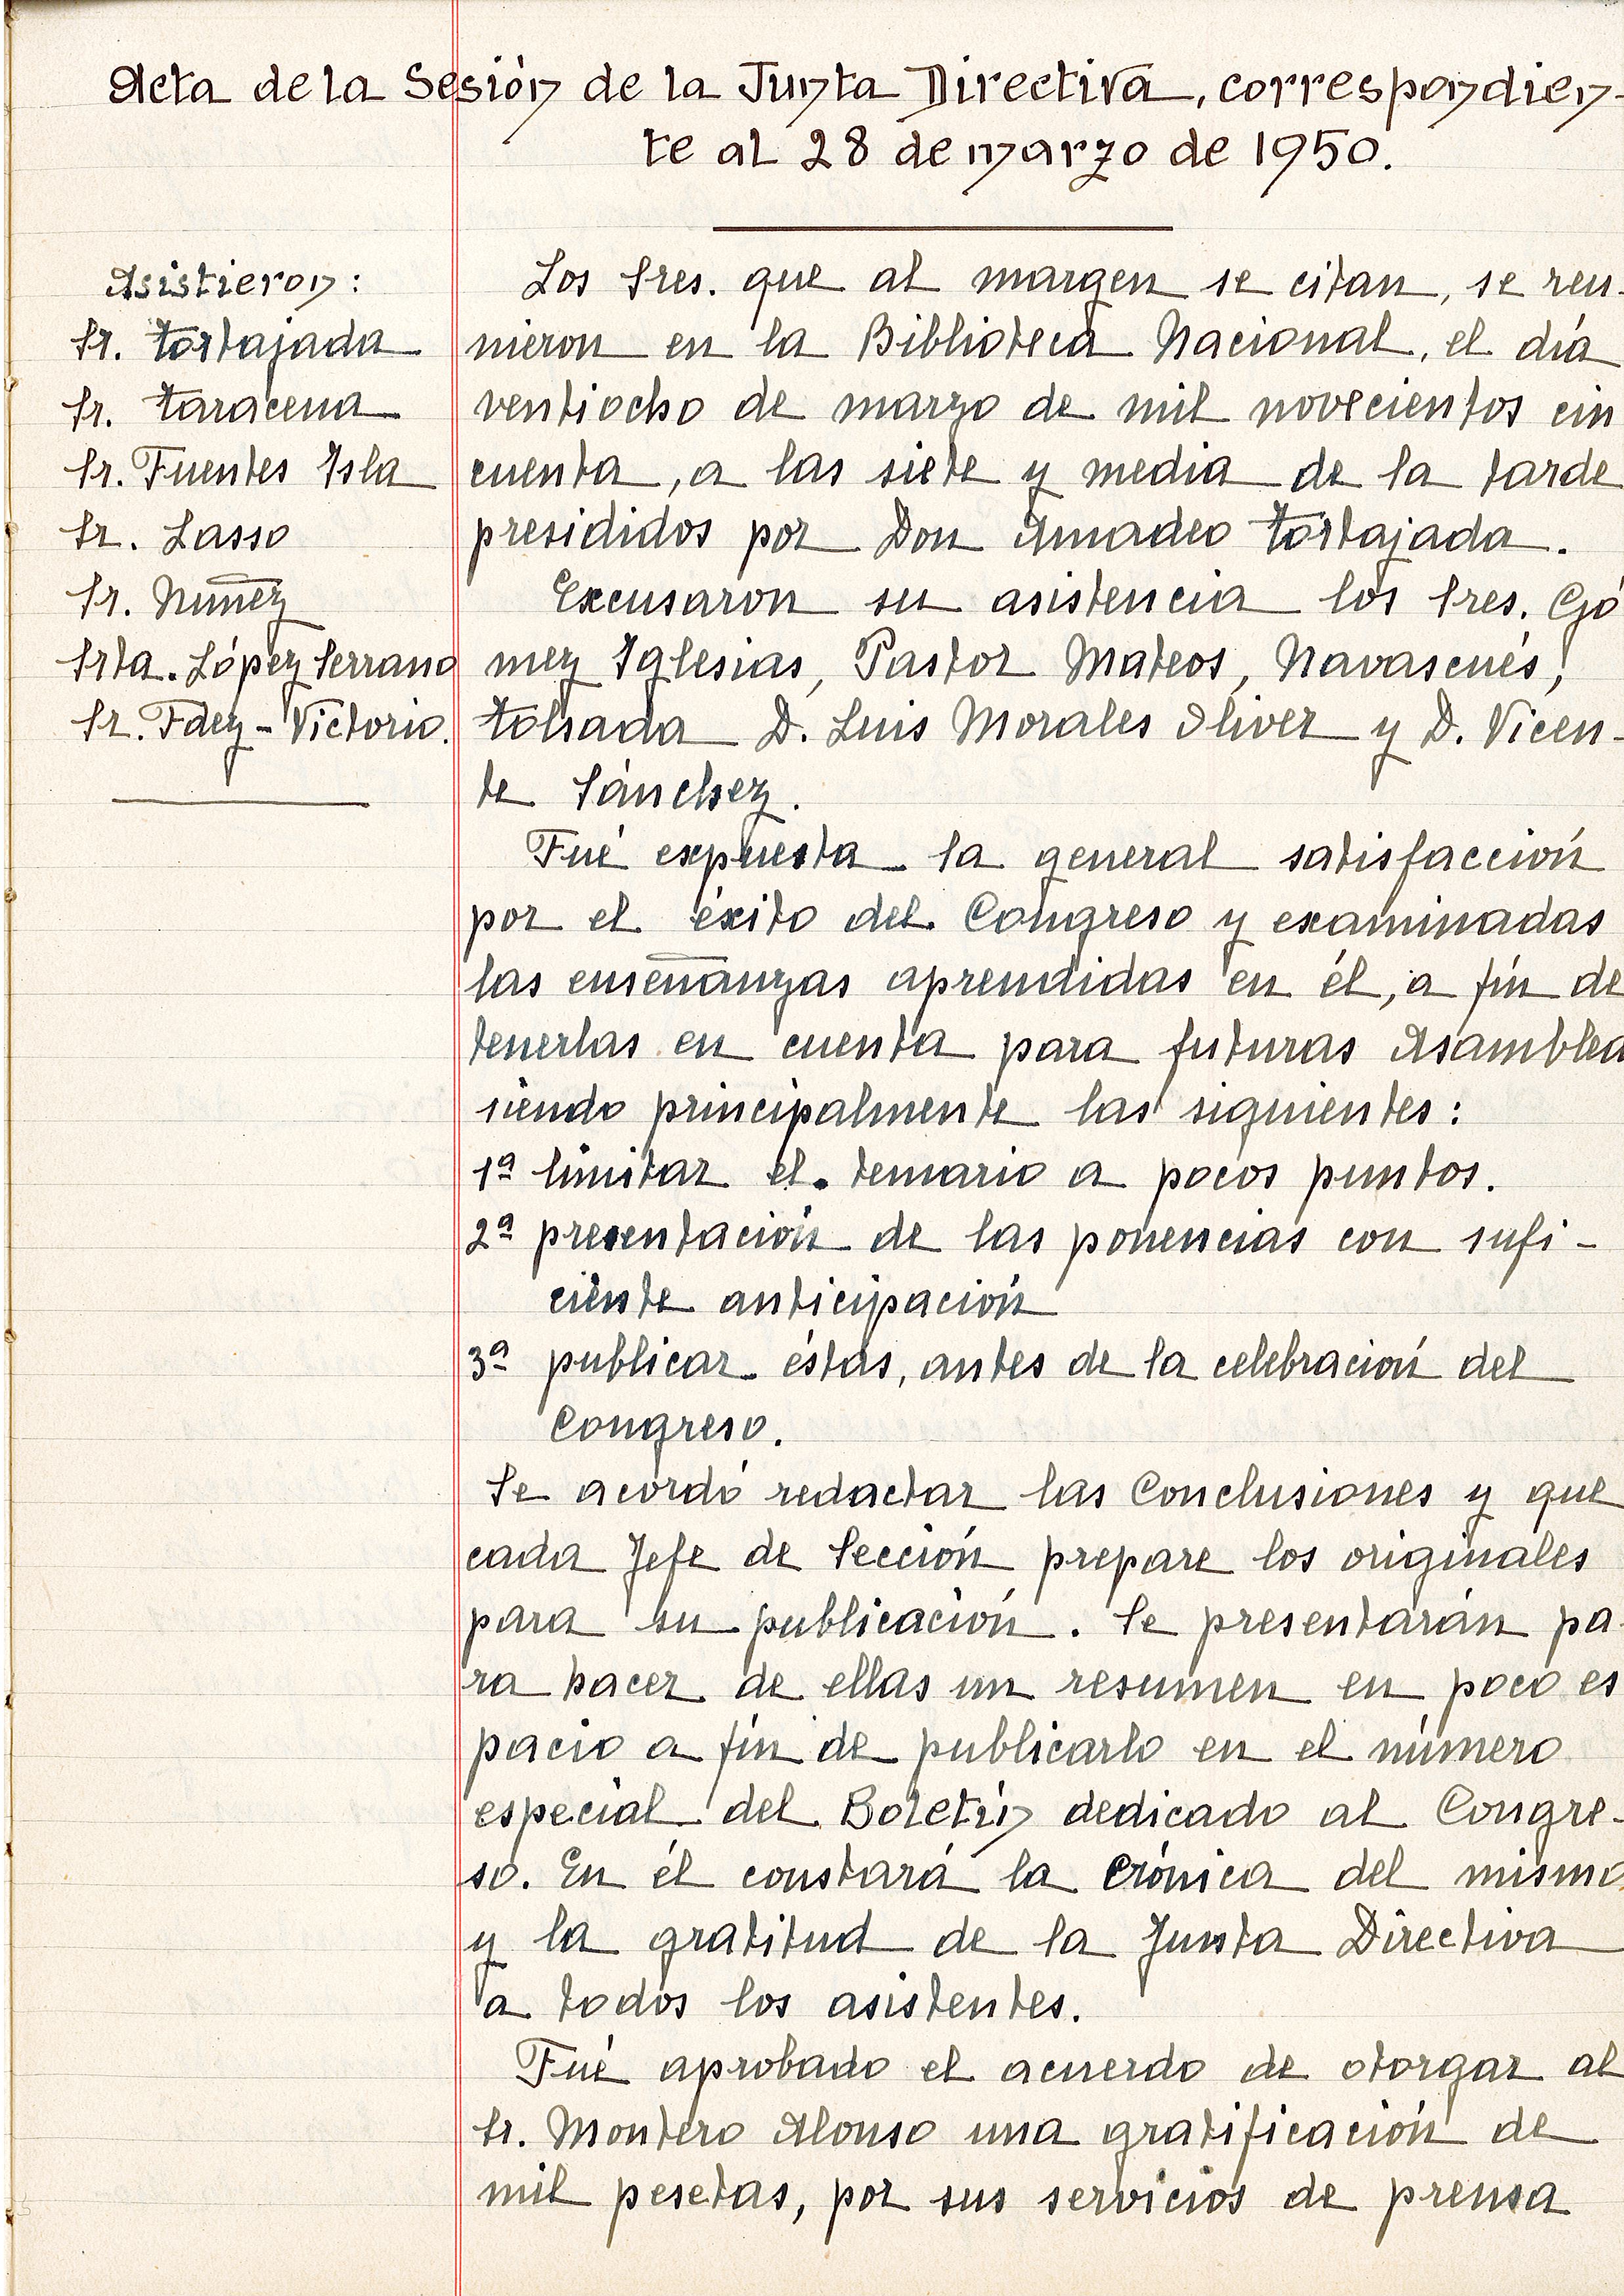 Acta de la Sesión de la Junta Directiva, correspondien-
te al 28 de marzo de 1950.
Asistieron:
Sr. Tortajada
Sr. Taracena
Sr. Fuentes Isla
Sr. Lasso
Sr. Nuñez
Srta. López Serrano
Sr. Fdez-Victorio.
Los Sres. que al margen se citan, se reu-
nieron en la Biblioteca Nacional, el día
ventiocho de marzo de mil novecientos cin
cuenta, a las siete y media de la tarde
presididos por Don Amadeo Tortajada.
Excusaron su asistencia los Sres. Gó
mez Iglesias, Pastor Mateos, Navascués,
Tolsada D. Luis Morales Oliver y D. Vicen-
te Sánchez.
Fué expuesta la general satisfacción
por el éxito del Congreso y examinadas
las enseñanzas aprendidas en él, a fín de
tenerlas en cuenta para futuras Asamblea
siendo principalmente las siguientes:
1ª limitar el temario a pocos puntos.
2ª presentación de las ponencias con sufi-
ciente anticipación
3ª publicar éstas, antes de la celebración del
Congreso.
Se acordó redactar las Conclusiones y que
cada Jefe de Sección prepare los originales
para su publicación. Se presentarán pa-
ra hacer de ellas un resumen en poco es
pacio a fín de publicarlo en el número
especial del Boletín dedicado al Congre-
so. En él constará la Crónica del mismo
y la gratitud de la Junta Directiva
a todos los asistentes.
Fué aprobado el acuerdo de otorgar al
Sr. Montero Alonso una gratificación de
mil pesetas, por sus servicios de prensa